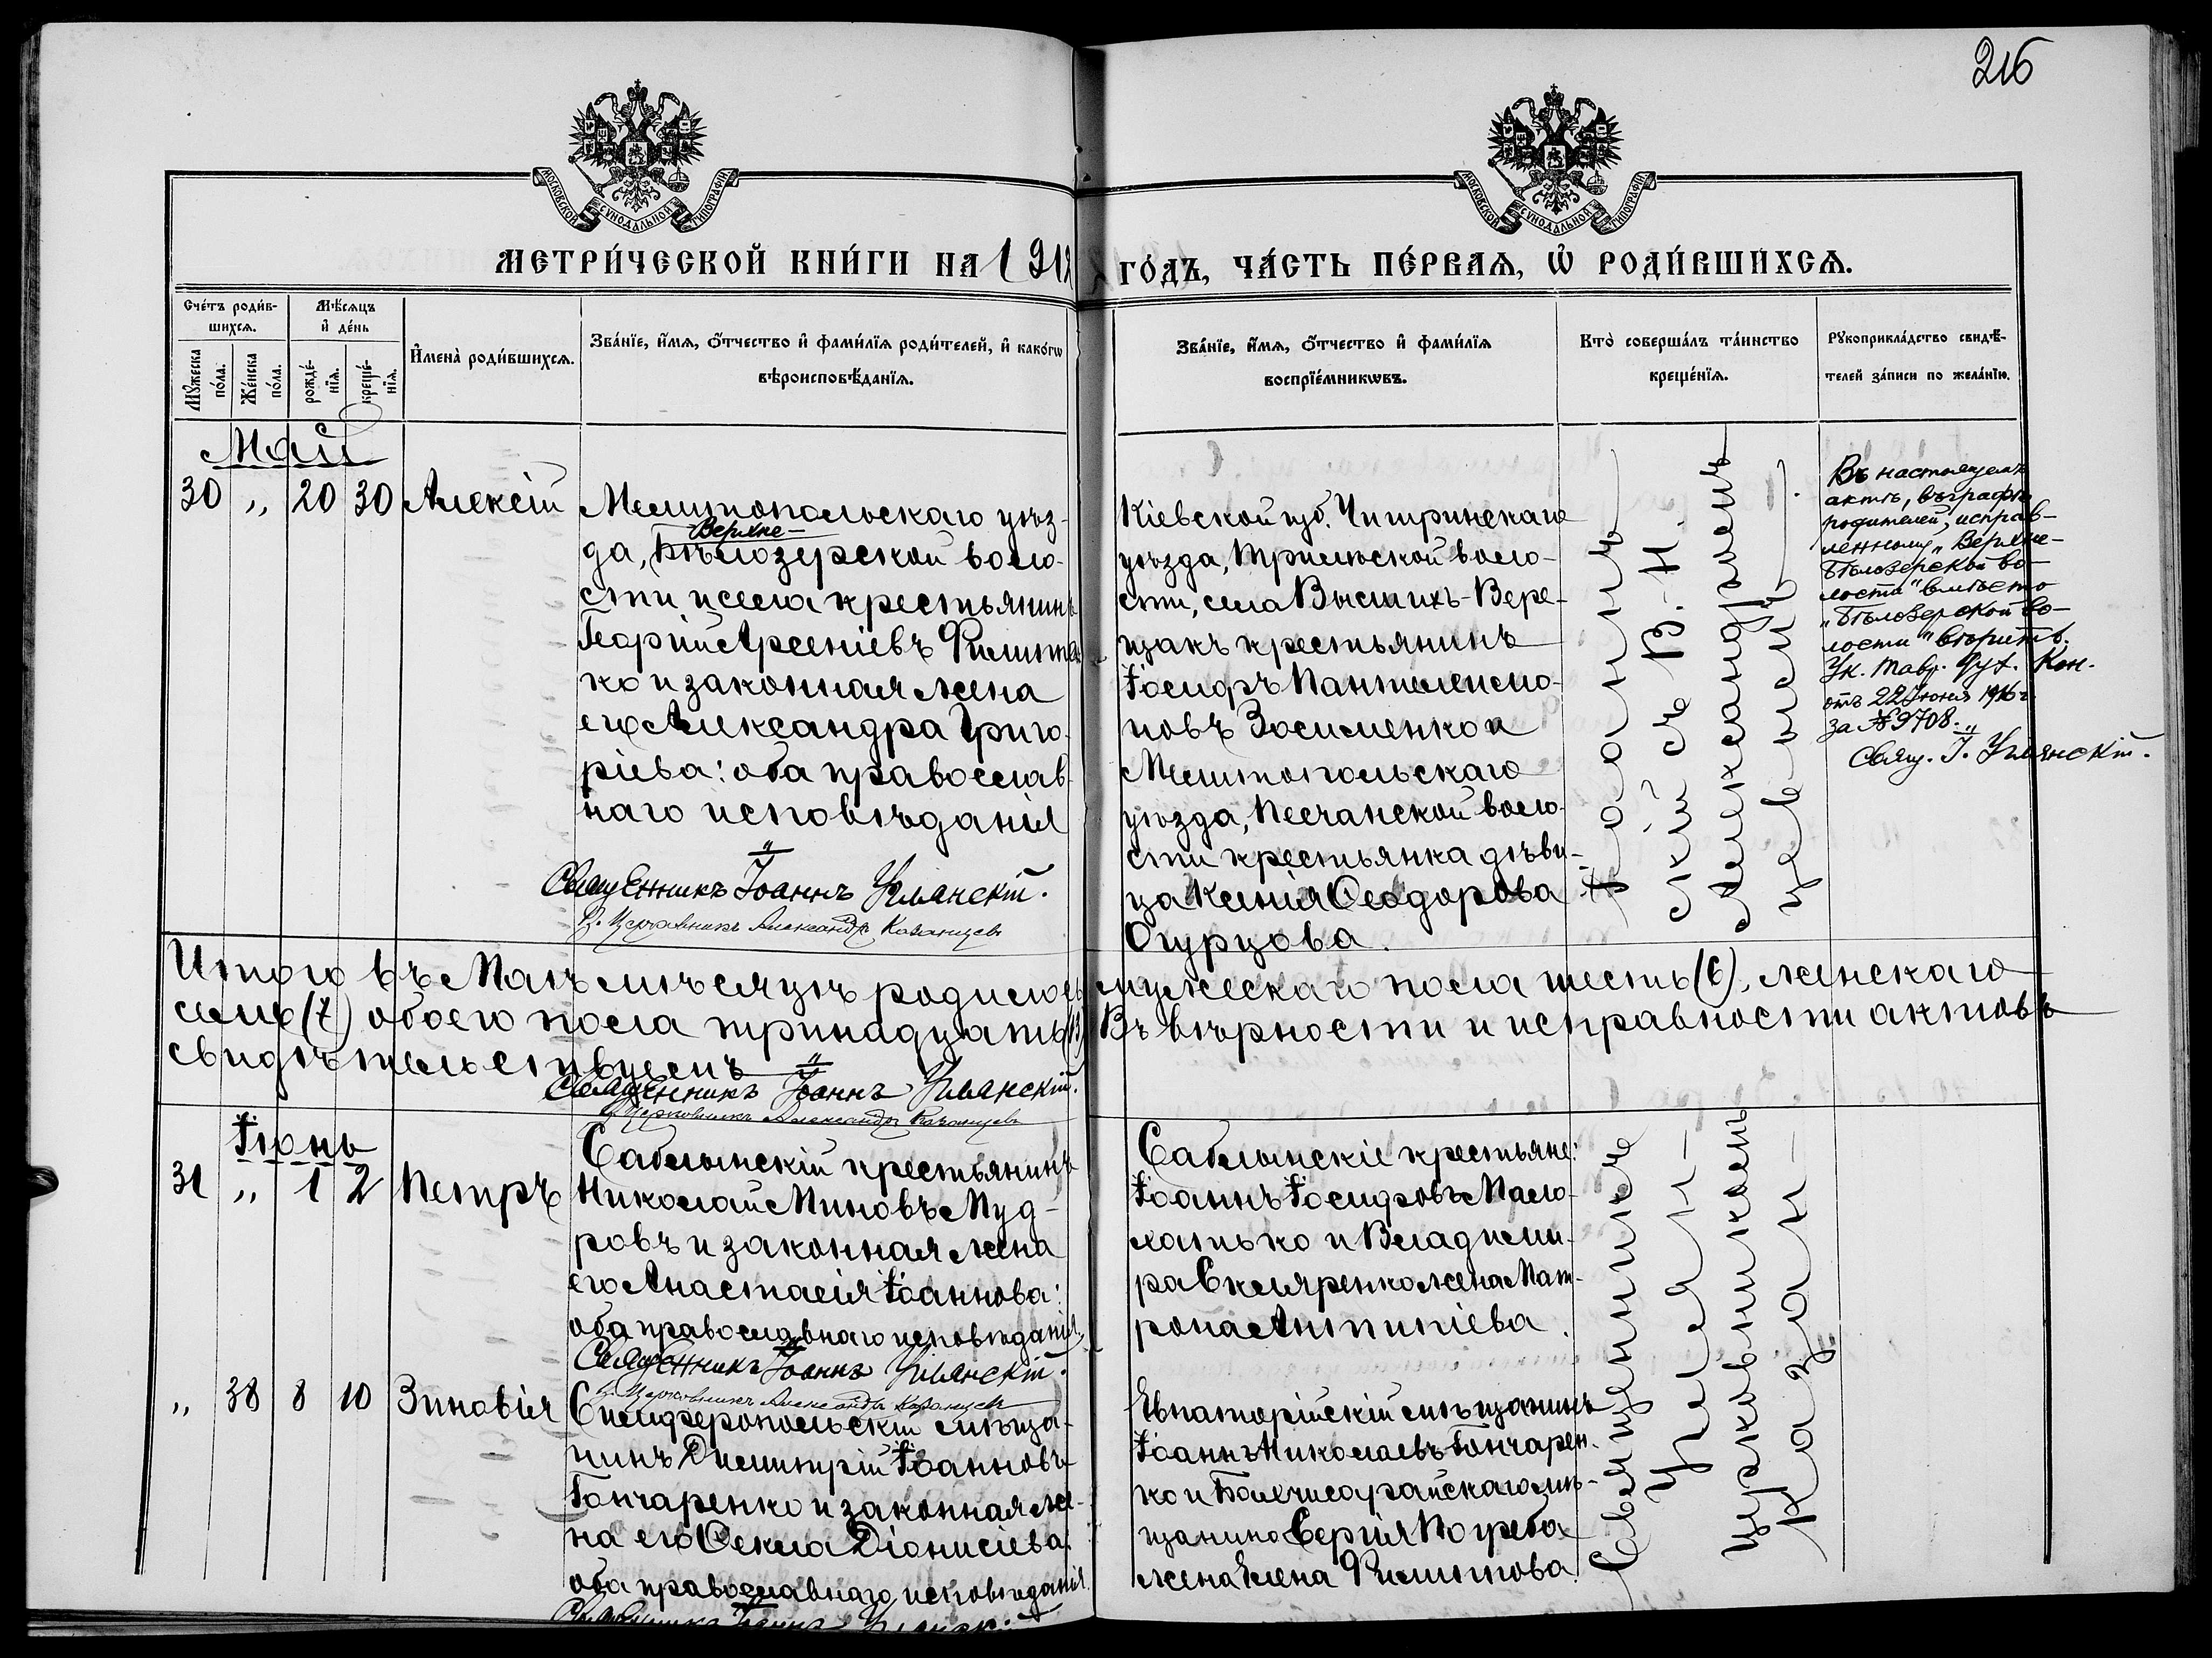 216
МОСКОВСКОЙ СѴНОДАЛЬНОЙ ТИПОГРАФІИ
МОСКОВСКОЙ СѴНОДАЛЬНОЙ ТИПОГРАФІИ
МЕТРИ́ЧЕСКОЙ КНИ́ГИ НА 1912 ГО́ДЪ, ЧА́СТЬ ПЕ́РВАЯ, Ѡ҆ РОДИ́ВШИХСЯ.
Сче́тъ роди́в-
шихся.
Мꙋжеска по́ла.
Же́нска по́ла.
Мѣ́сяцъ
и҆ де́нь
рожде́-
нїя.
креще́-
нїя.
И҆мена̀ роди́вшихся.
Зва́нїе, и҆́мя, ѻ҆́тчество и҆ фами́лїя роди́телей, и҆ како́гѡ
вѣроисповѣ́данїя.
Зва́нїе, и҆́мя, ѻ҆́тчество и҆ фами́лїя
воспрїе́мникѡвъ.
Кто̀ соверша́лъ та́инство
креще́нїя.
Рꙋкоприкла́дство свидѣ́-
телей за́писи по жела́нїю.
Май
30 „ 20 30 Алексій
Мелитопольскаго уѣз-
Верхне-
да, Бѣлозерской воло-
сти и села крестьянинъ
Георгій Арсеніевъ Филипа
ко и законная жена
его Александра Григо-
ріева: оба православ-
наго исповѣданія
Священникъ Іоаннъ Ульянскій.
И. Церковникъ Александръ Казанцевъ
Кіевской губ. Чигиринскаго
уѣзда, Трилѣской воло-
сти, села Высшихъ-Вере-
щакъ крестьянинъ
Іосифъ Пантелеимо-
новъ Зосименко и
Мелитопольскаго
уѣзда, Песчанской воло-
сти крестьянка дѣви-
ца Ксенія Ѳеодорова
Огурцова.
Александромъ
Въ настоящемъ
актѣ, въ графѣ
родителей, исправ-
ленному „Верхне-
Бѣлозерской во-
лости" вмѣсто
„Бѣлозерской во-
лости" вѣрить.
Ук. Тавр. Дух. Кон.
отъ 22 Іюня 1916 г.
за № 9708.
Свящ. І. Ульянскій.
Итого въ Маѣ мѣсяцѣ родилось мужескаго пола шесть (6), женскаго
семь (7) обоего пола тринадцать (13) Въ вѣрности и исправности актовъ
свидѣтельствуемъ
Священникъ Іоаннъ Ульянскій.
И. Церковникъ Александръ Казанцевъ
Іюнь
31 „ 1 2 Петръ
Саблынскій крестьянинъ
Николай Миновъ Муд-
ровъ и законная жена
его Анастасія Іоаннова:
оба православнаго исповѣданія
Священникъ Іоаннъ Ульянскій.
И. Церковникъ Александръ Казанцевъ
Саблынскіе крестьяне:
Іоаннъ Іосифовъ Мало-
хатько и Владими-
ра Скляренко жена Мат-
рона Антипіева.
„ 38 8 10 Зиновія
Симферопольскій мѣща-
нинъ Димитрій Іоанновъ
Гончаренко и законная же-
на его Ѳекла Діонисіева:
оба православнаго исповѣданія
Священникъ Іоаннъ Ульянскій
Евпаторійскій мѣщанинъ
Іоаннъ Николаевъ Гончарен-
ко и Бахчисарайскаго мѣ-
щанина Сергія Погреба
жена Елена Филиппова.
Священникъ